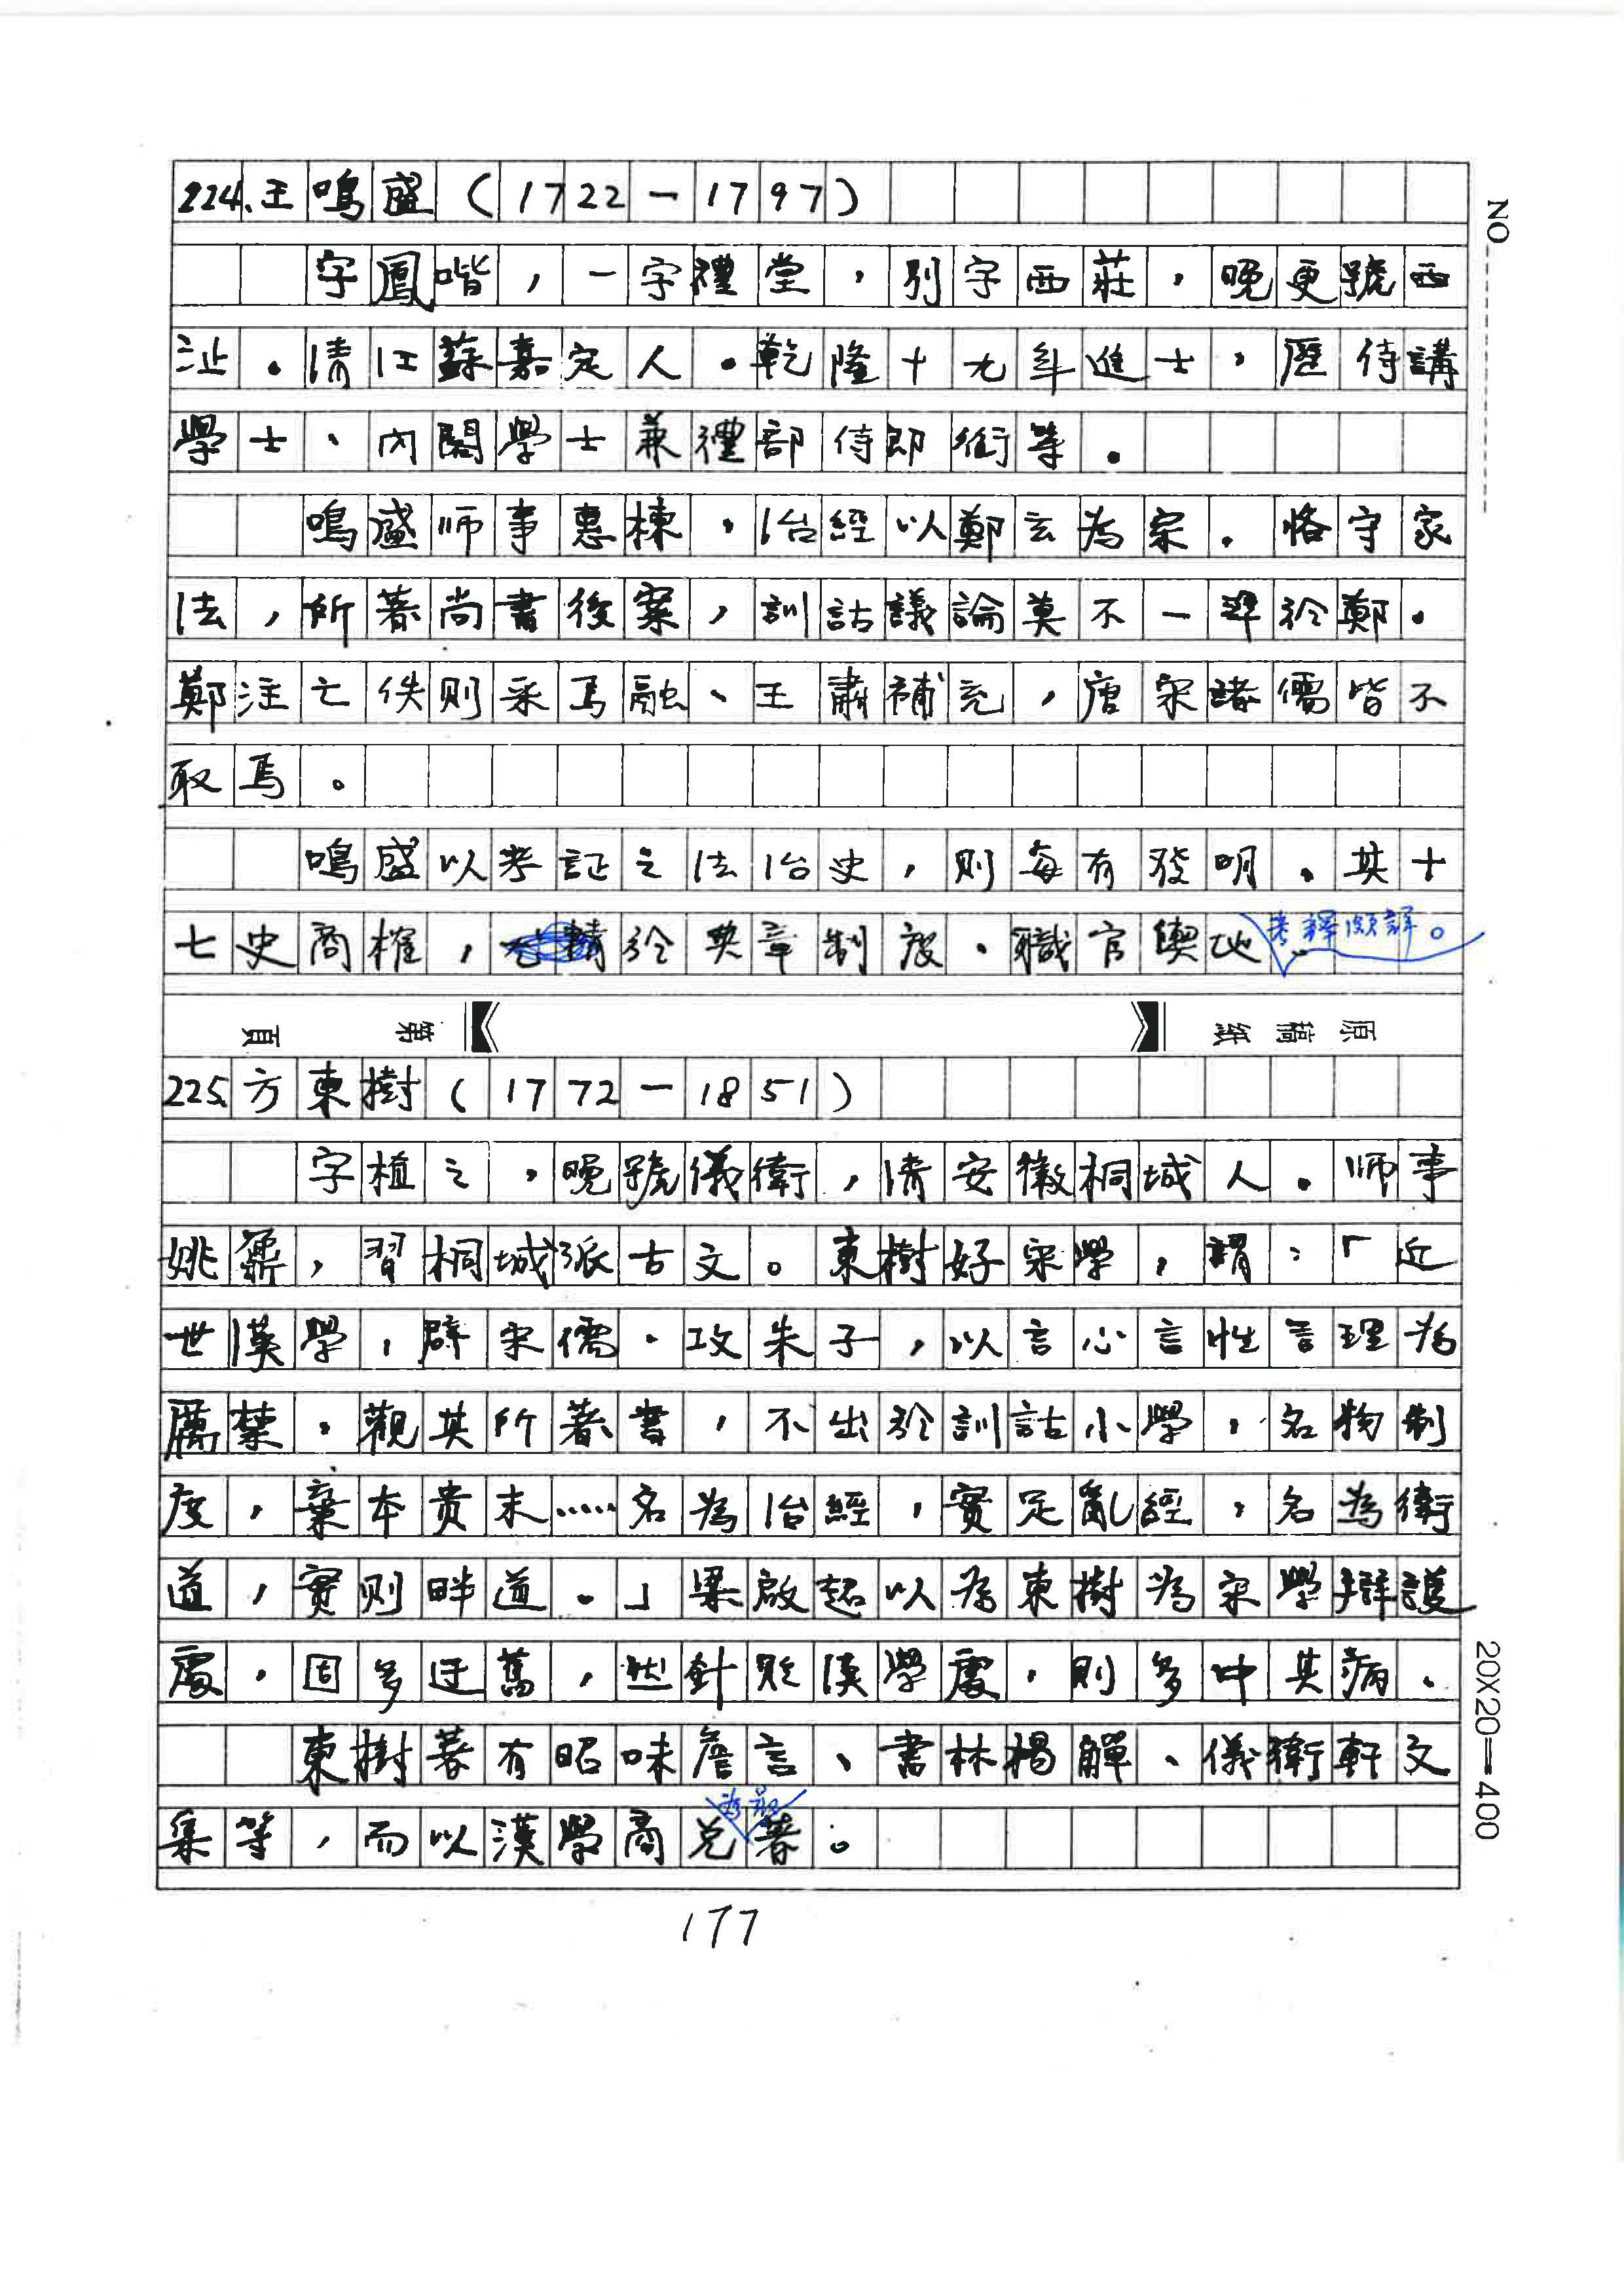 224.王鳴盛(1722-1797)
字鳳喈,一字禮堂,別字西莊,晚更號西
沚。清江蘇嘉定人。乾隆十九年進士,歷侍講
學士、內閣學士兼禮部侍郎銜等。
鳴盛師事惠棟,治經以鄭玄為宗。恪守家
法,所著尚書後案,訓詁議論莫不一準於鄭。
鄭注亡佚則采馬融、王肅補充,唐宋諸儒皆不
取焉。
鳴盛以考証之法治史,則每有發明。其十
七史商榷,於典章制度、職官輿地考釋頗詳。
原稿紙 第 頁
225.方東樹(1772-1851)
字植之,晚號儀衛,清安徽桐城人。師事
姚鼐,習桐城派古文。東樹好宋學,謂:「近
世漢學,辟宋儒、攻朱子,以言心言性言理為
厲禁,觀其所著書,不出於訓詁小學,名物制
度,棄本貴末……名為治經,實足亂經,名為衛
道,實則畔道。」梁啟超以為東樹為宋學辯護
處,固多迂舊,然針貶漢學處,則多中其病。
東樹著有昭味詹言、書林楊觶、儀衛軒文
集等,而以漢學商兌為最著。
177
NO
20X20=400